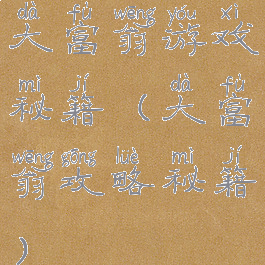 dà fù wēng yóu xì
大富翁游戏
mì jí dà fù
秘籍(大富
wēng gōng lüè mì jí
翁攻略秘籍
)